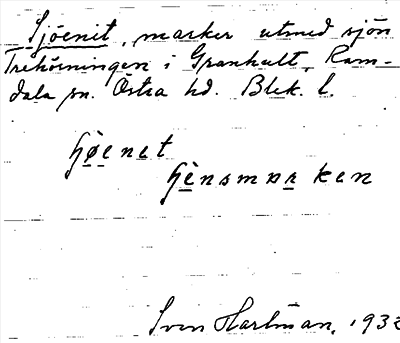 Sjöenit, marker utmed sjön
Trehörningen i Granhult, Ram-
dala sn. Östra hd. Blek. l.
ɧøenet
ɧènsmarken
Sven Hartman, 1932